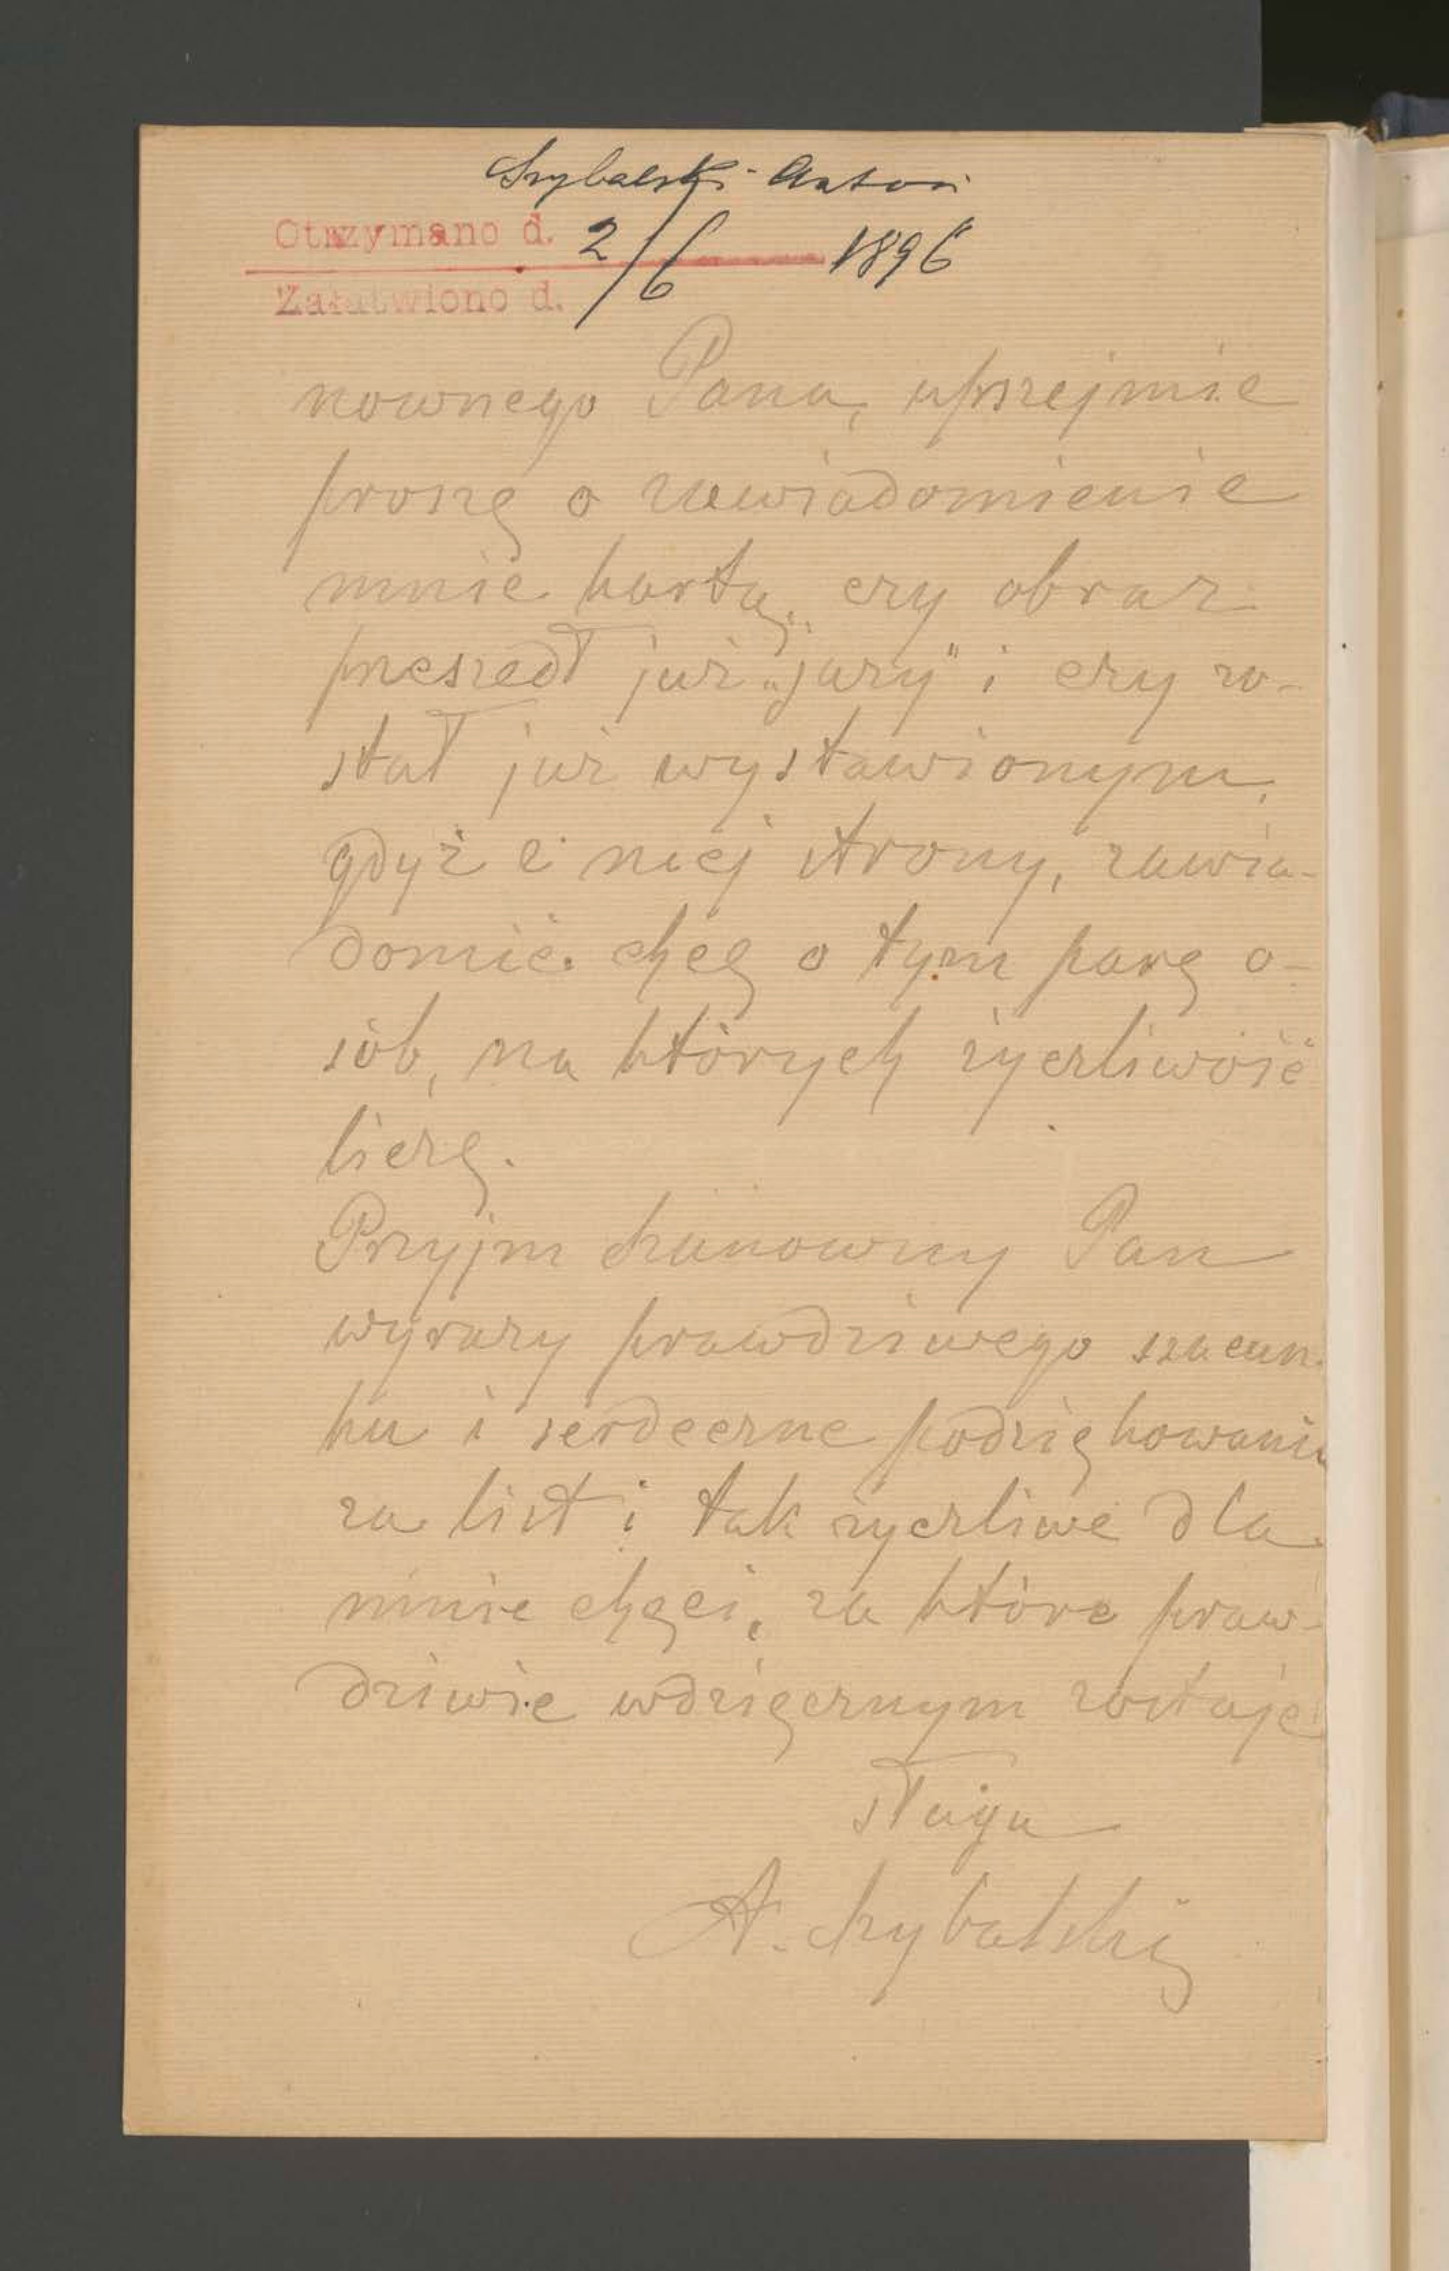 Szybalski Antoni
Otrzymano d. 2/6 1896
Załatwiono d.
nownego Pana, uprzejmie
proszę o zawiadomienie
mnie kartą, czy obraz
przeszedł już „jury" i czy zo-
stał już wystawionym,
gdyż z mej strony, zawia-
domić chcę o tym parę o-
sób, na których życzliwość
liczę.
Przyjm Szanowny Pan
wyrazy prawdziwego szacun-
ku i serdeczne podziękowania
za list i tak życzliwe dla
mnie chęci, za które praw-
dziwie wdzięcznym zostaję
sługa
A. Szybalski